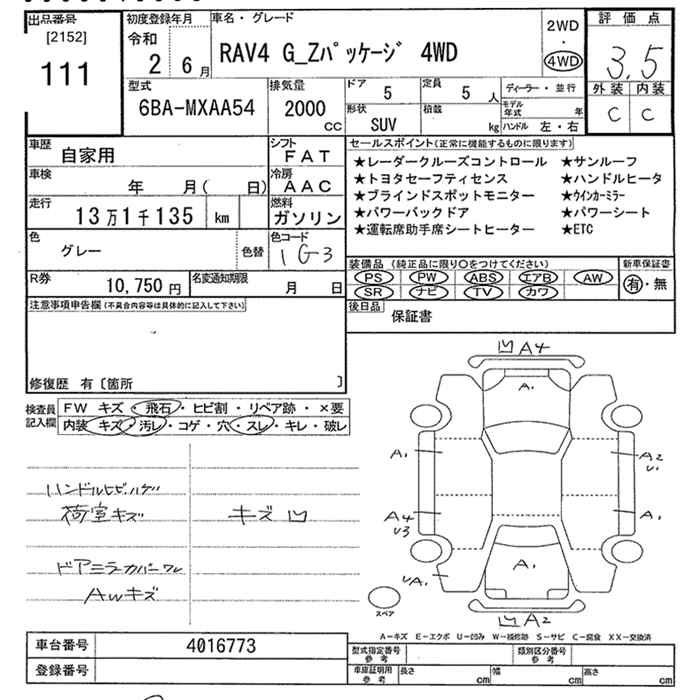 出品番号
[2152]
111
初度登録年月
令和
2 6月
車名・グレード
RAV4 G_Zパッケージ 4WD
2WD
・
4WD
評価点
3.5
外装 内装
C C
型式
6BA-MXAA54
排気量
2000
CC
ドア
5
定員
5 人
ディーラー・並行
モデル年式 年
形状
SUV
積載
kg
ハンドル 左・右
車歴
自家用
シフト
FAT
車検
年 月( 日)
冷房
AAC
走行
13万1千135 km
燃料
ガソリン
色
グレー
色替
色コード
1G3
R券
10,750円
名変通知期限
月 日
セールスポイント(正常に機能するものに限ります)
★レーダークルーズコントロール ★サンルーフ
★トヨタセーフティセンス ★ハンドルヒータ
★ブラインドスポットモニター ★ウインカーミラー
★パワーバックドア ★パワーシート
★運転席助手席シートヒーター ★ETC
装備品 (純正品に限り○をつけてください)
新車保証書
PS PW ABS エアB AW
有・無
SR ナビ TV カワ
後日品
保証書
注意事項申告欄(不具合内容等は具体的に記入して下さい)
修復歴 有〔箇所 〕
検査員
記入欄
FW キズ・飛石・ヒビ割・リペア跡・×要
内装 キズ・汚レ・コゲ・穴・スレ・キレ・破レ
ハンドルヒビ・ハゲ
荷室キズ
キズ凹
ドアミラーカバーワレ
AWキズ
凹A4
A1
A1
A2
U1
A4
U3
A1
UA1
A1
凹A2
スペア
A-キズ E-エクボ U-凹み W-補修跡 S-サビ C-腐食 XX-交換済
車台番号
4016773
登録番号
型式指定番号
参考
類別区分番号
参考
車庫証明用
参考
長さ cm
幅 cm
高さ cm